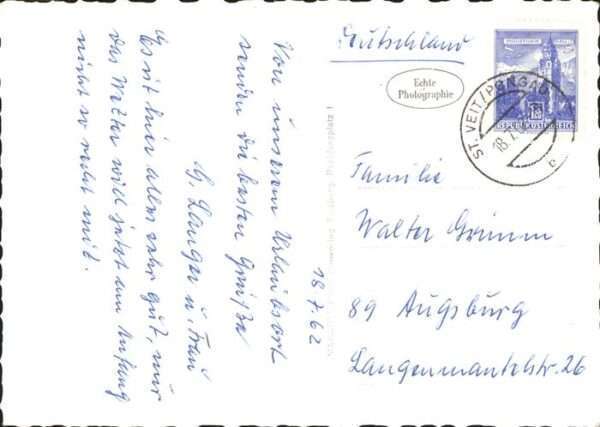 18.7.62
Von unserem Urlaubsort
senden die besten Grüße
G. Langer u. Frau
Es ist hier alles sehr gut, nur
das Wetter will jetzt am Anfang
nicht so recht mit.
Deutschland
Echte
Photographie
REPUBLIK ÖSTERREICH
ST. VEIT/PONGAU
18.7.
b
Familie
Walter Grimm
89 Augsburg
Langenmantelstr. 26